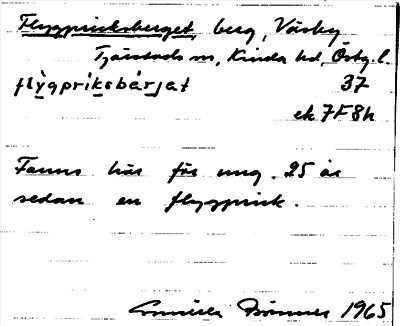 Flygpricksberget, berg, Väsby
Tjärstads sn, Kinda hd, Östg. l.
flỳgpriksbärjat 37
ek 7F8h
Fanns här för ung. 25 år
sedan en flygprick.
Gunilla 1965